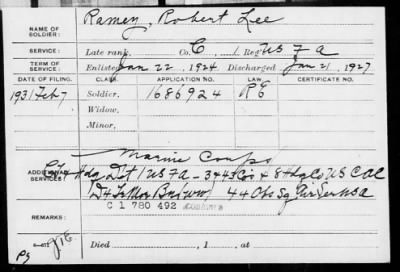 NAME OF SOLDIER: Ramey, Robert Lee
SERVICE: Late rank, Co. C 1 Reg't US F A
TERM OF SERVICE: Enlisted Jan 22, 1924 Discharged Jan 21, 1927
DATE OF FILING. CLASS. APPLICATION NO. LAW. CERTIFICATE NO.
1931 Feb 7 Soldier, 1686924 RE
Widow,
Minor,
Marine Corps
ADDITIONAL SERVICES: Hdq Det 1 US F A - 344 Co & 8 Hdq Co US C A C
44 Obs Sq Air Ser USA
C 1 780 492
REMARKS:
Died , 1 , at